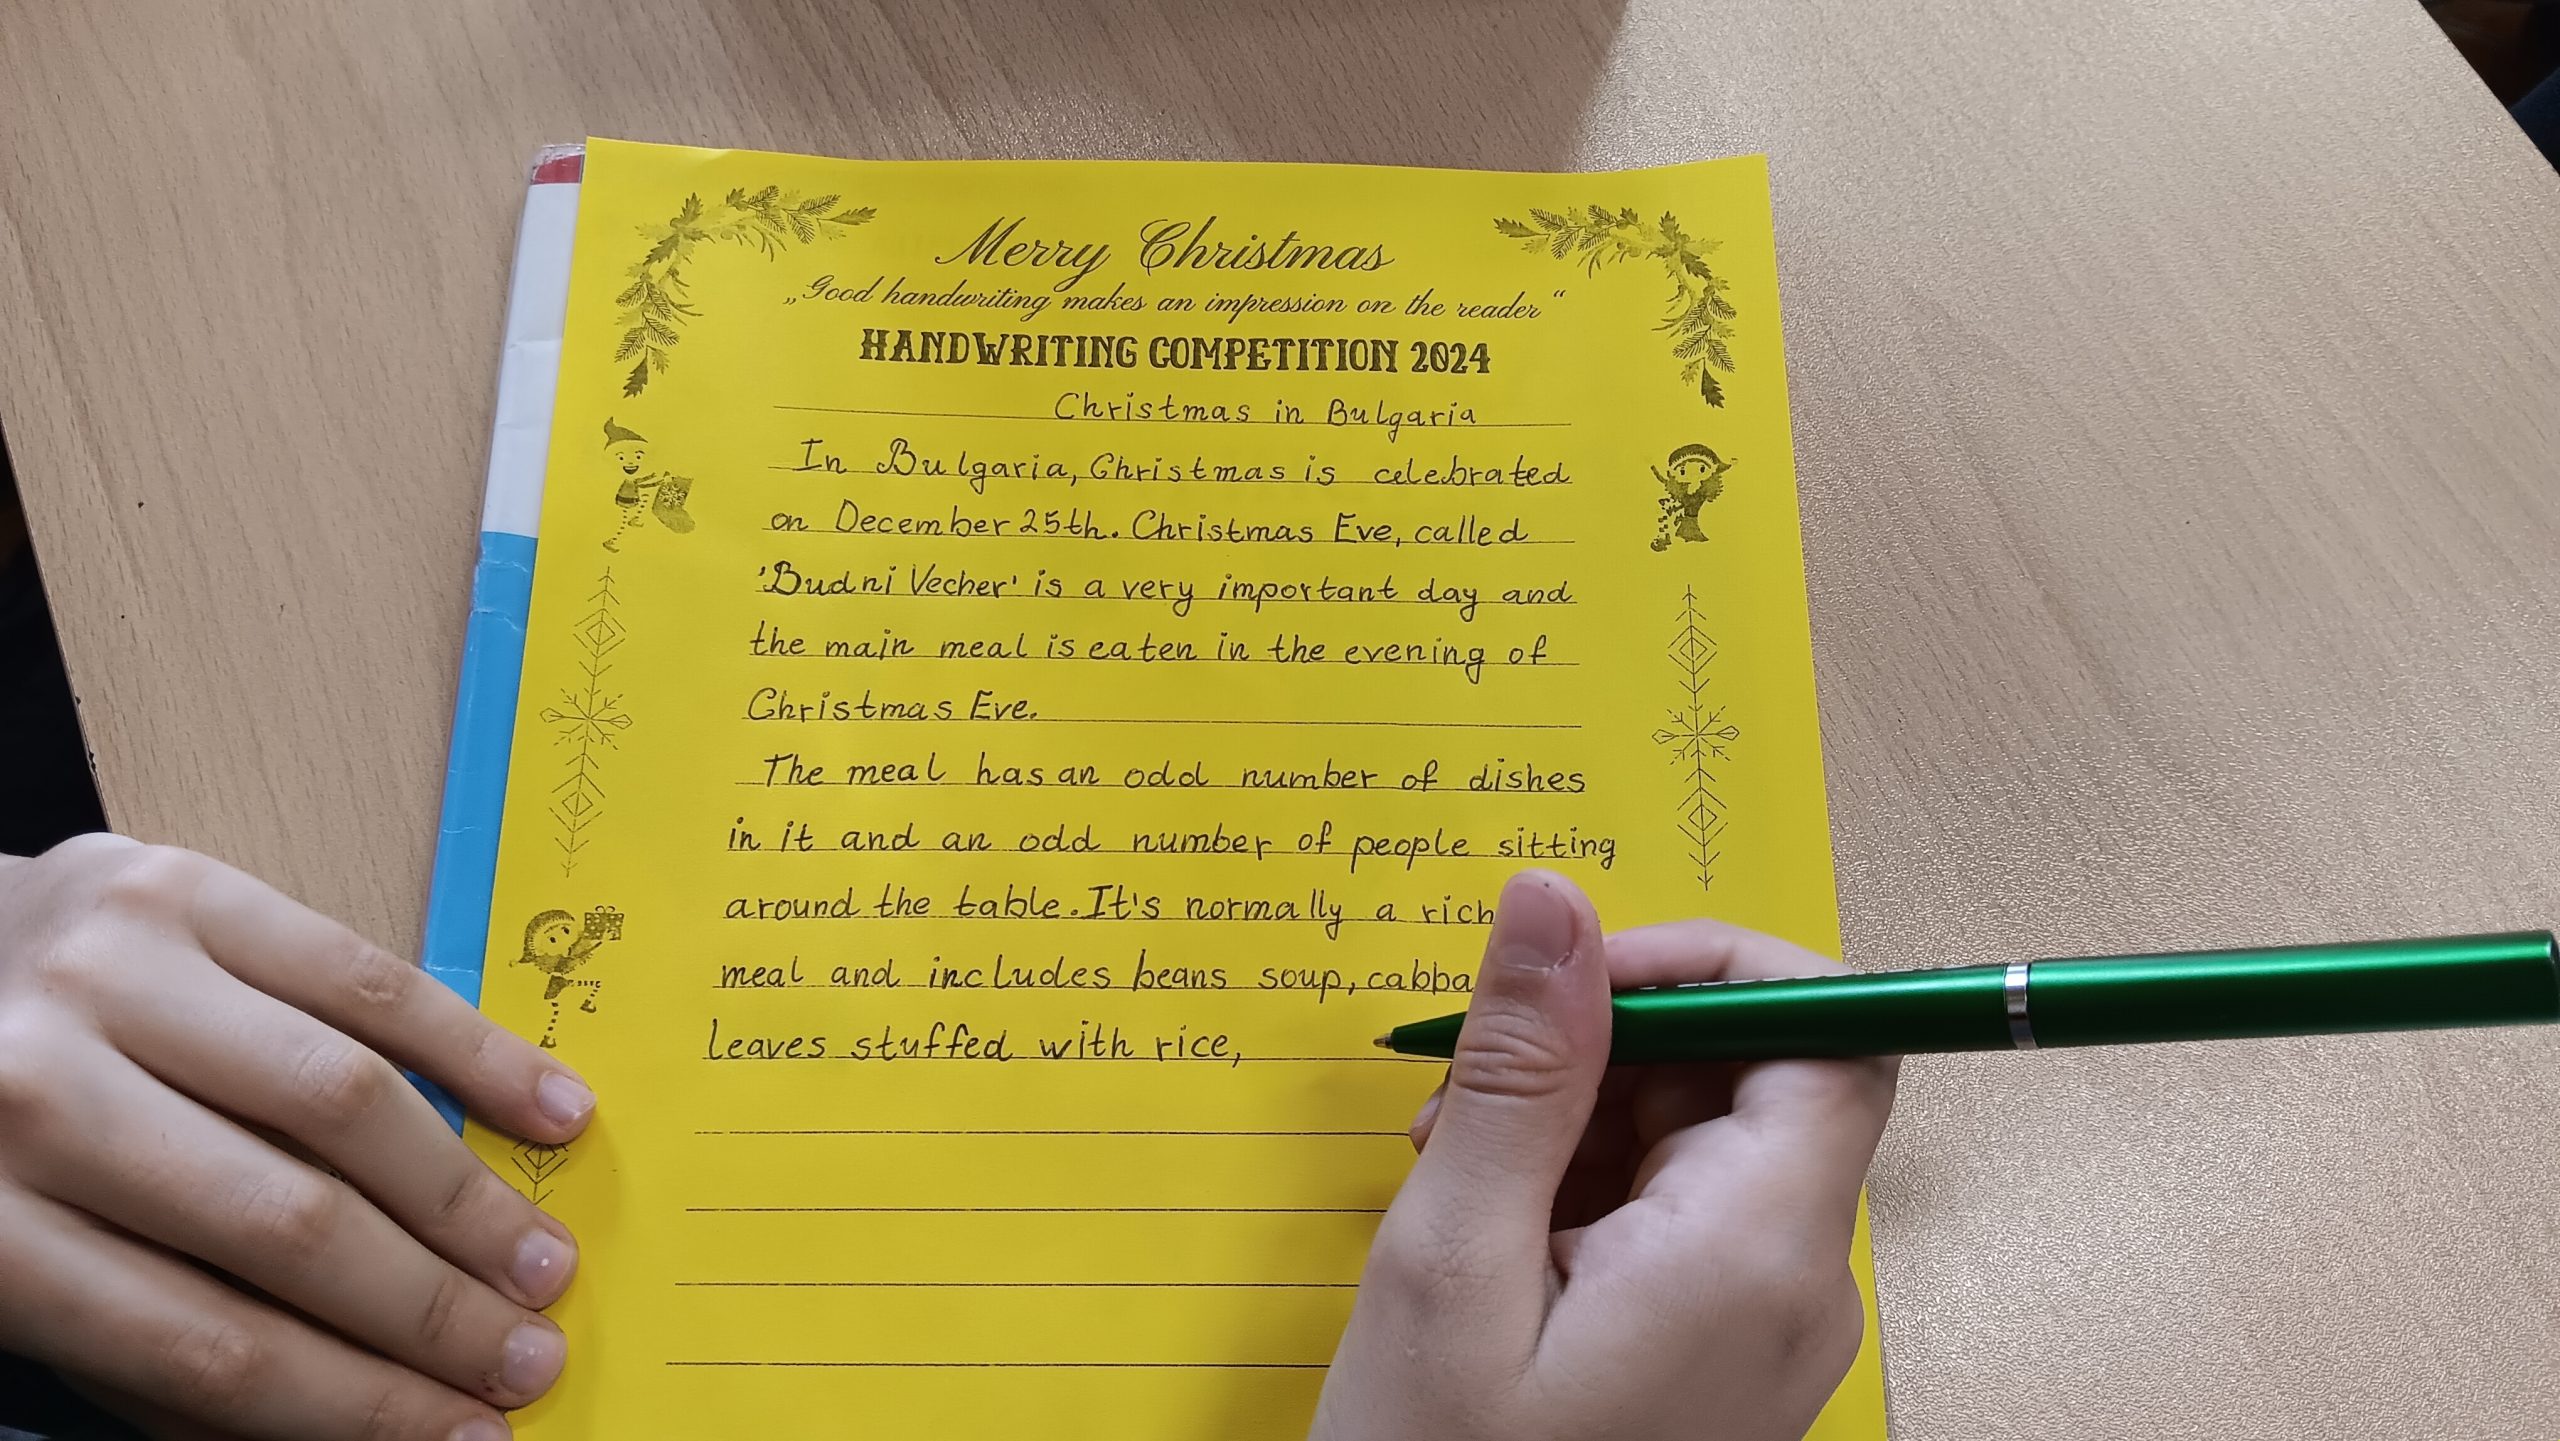 Merry Christmas
„Good handwriting makes an impression on the reader“
HANDWRITING COMPETITION 2024
Christmas in Bulgaria
In Bulgaria, Christmas is celebrated
on December 25th. Christmas Eve, called
'Budni Vecher' is a very important day and
the main meal is eaten in the evening of
Christmas Eve.
The meal has an odd number of dishes
in it and an odd number of people sitting
around the table. It's normally a rich
meal and includes beans soup, cabba
leaves stuffed with rice,